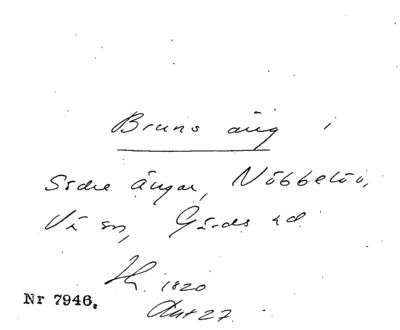 Bruns äng i
Södre ängar, Nöbbelöv,
Vä sn, Gärds hd.
Hz. 1820
Akt 27.
Nr 7946.